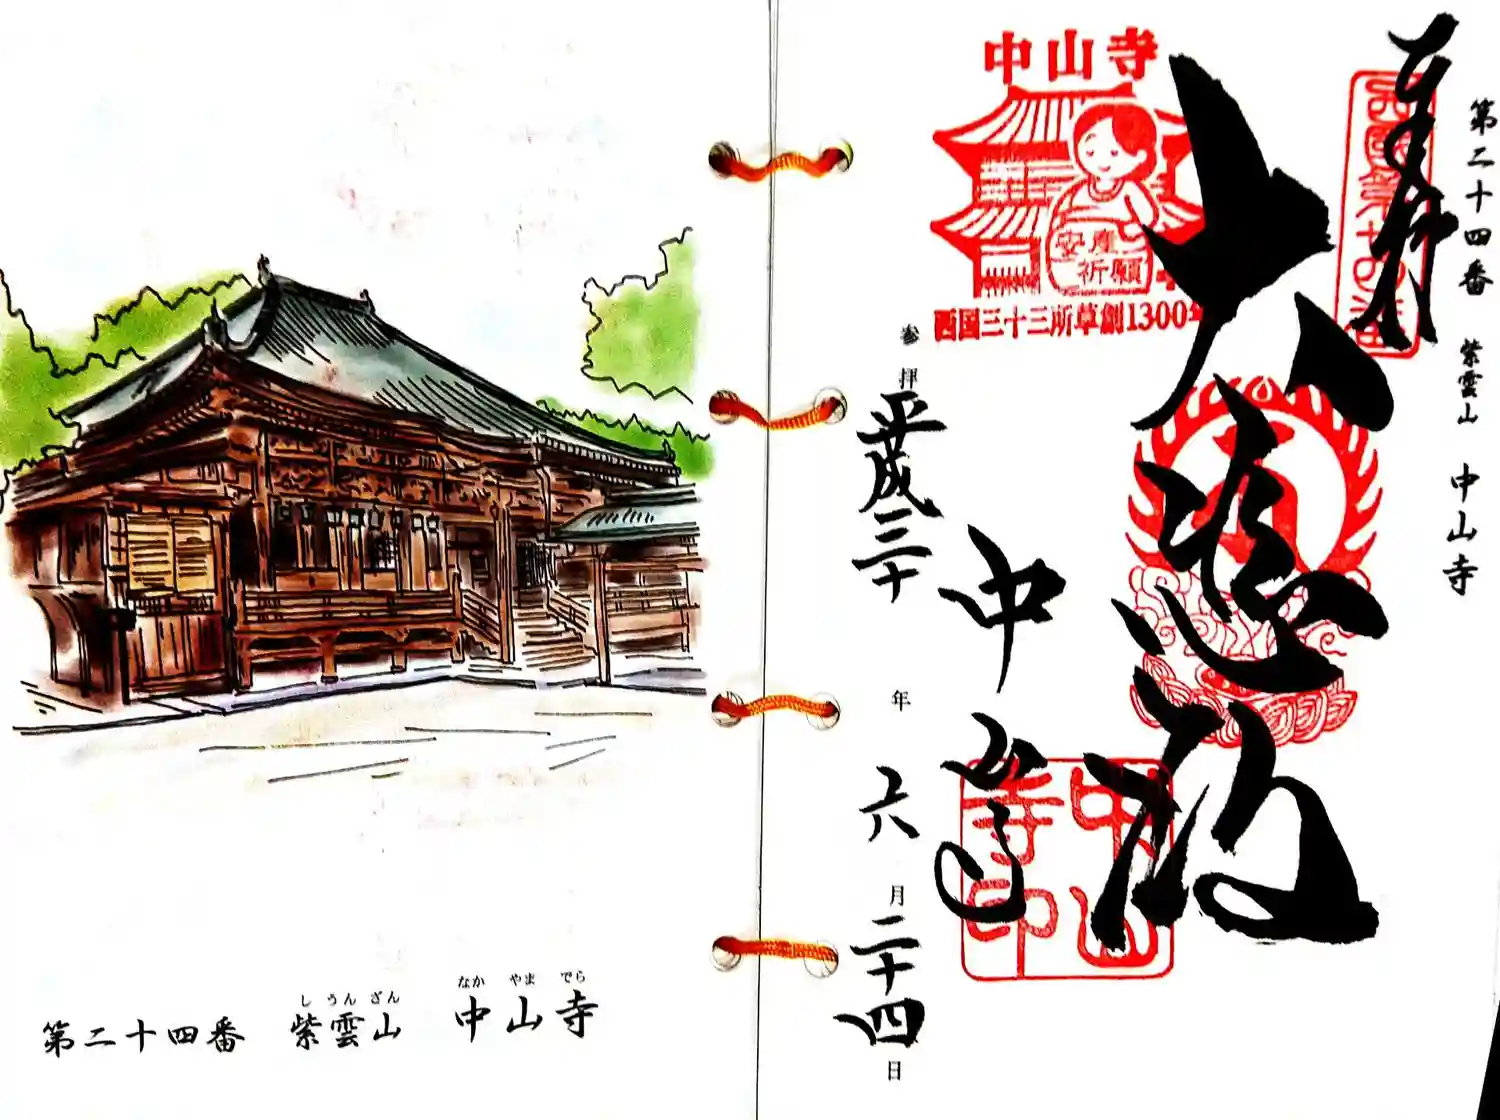 第二十四番 紫雲山 中山寺
奉拝
西國第廿四番
大悲殿
中山寺
安産
祈願
西国三十三所草創1300年
中山寺
中山寺印
参拝 平成三十年六月二十四日
し うん ざん なか やま でら
第二十四番 紫雲山 中山寺